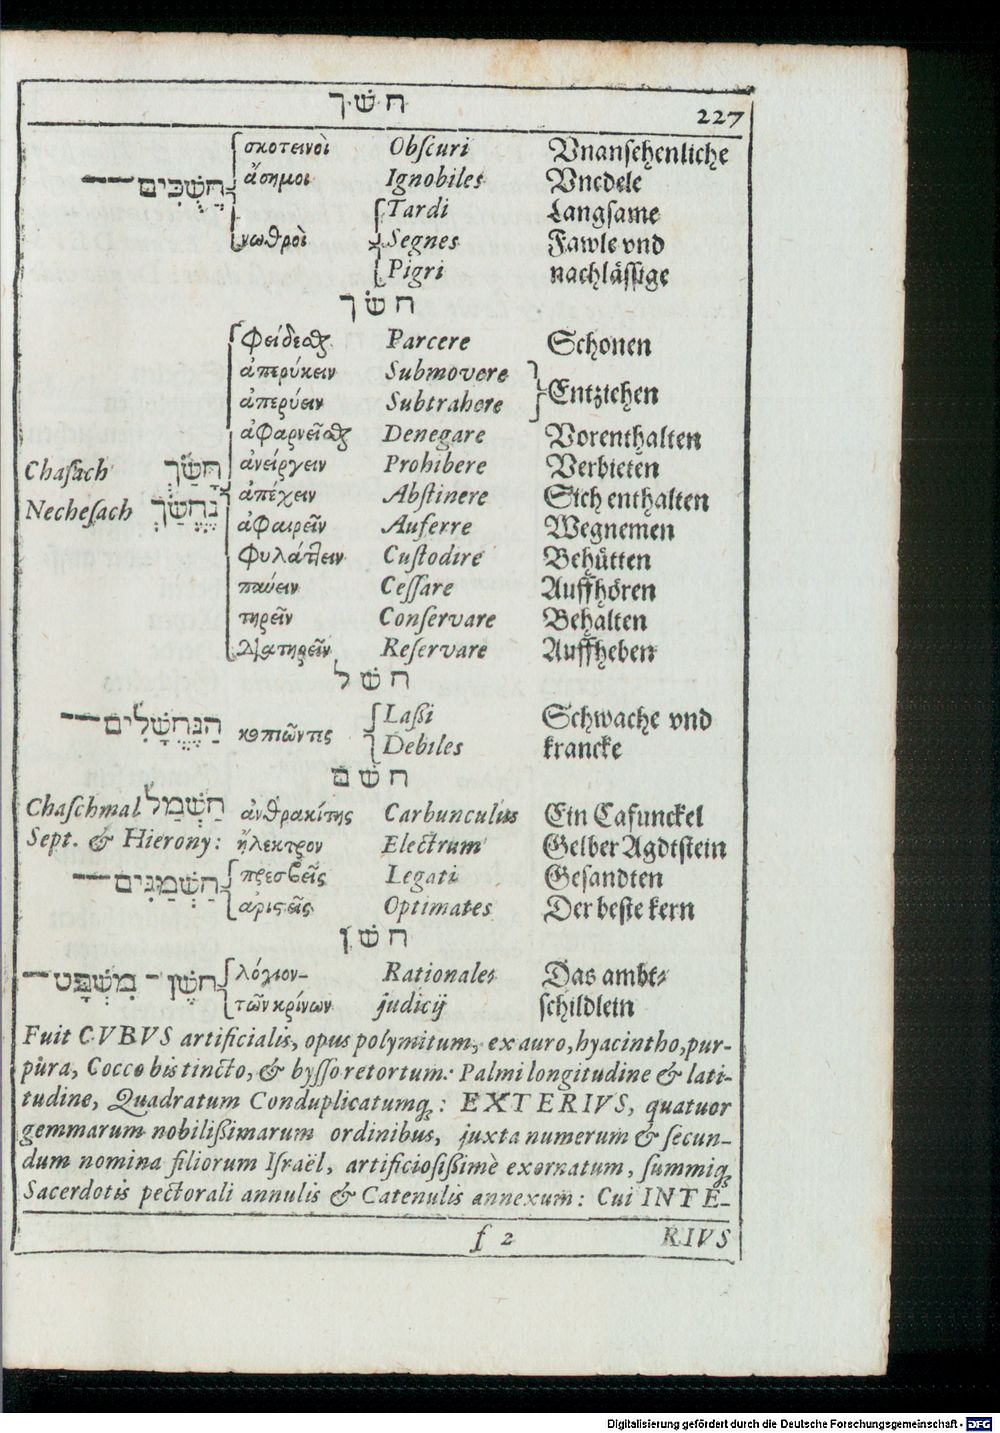 חשך
227
σκοτεινοὶ Obſcuri Vnanſehenliche
חֲשֻׁכִּים— ἄσημοι Ignobiles Vnedele
Tardi Langſame
νωθροὶ Segnes Fawle vnd
Pigri nachläſſige
חשך
φείδεσθαι Parcere Schonen
ἀπερύκειν Submovere
Entziehen
ἀπερύειν Subtrahere
ἀφαρνεῖσθαι Denegare Vorenthalten
Chaſach חָשַׂךְ ἀνείργειν Prohibere Verbieten
ἀπέχειν Abſtinere Sich enthalten
Necheſach נֶחֱשַׂךְ ἀφαιρεῖν Auferre Wegnemen
φυλάττειν Cuſtodire Behütten
παύειν Ceſſare Auffhören
τηρεῖν Conſervare Behalten
διατηρεῖν Reſervare Auffheben
חשל
הַנֶּחֱשָׁלִים— κοπιῶντες Laßi Schwache vnd
Debiles krancke
חשם
Chaſchmal חַשְׁמַל ἀνθρακίτης Carbunculus Ein Cafunckel
Sept. & Hierony: ἤλεκτρον Electrum Gelber Agdtſtein
חַשְׁמַנִּים— πρεσβεῖς Legati Geſandten
ἀριστεῖς Optimates Der beſte kern
חשן
חֹשֶׁן־ מִשְׁפָּט— λόγιον- Rationales Das ambt⸗
τῶν κρίνων judicij ſchildlein
Fuit CVBVS artificialis, opus polymitum, ex auro, hyacintho, pur-
pura, Cocco bis tincto, & byſſo retortum: Palmi longitudine & lati-
tudine, Quadratum Conduplicatumq́;: EXTERIVS, quatuor
gemmarum nobilißimarum ordinibus, juxta numerum & ſecun-
dum nomina filiorum Iſraël, artificioſißimè exornatum, ſummiq́;
Sacerdotis pectorali annulis & Catenulis annexum: Cui INTE-
f 2 RIVS
Digitalisierung gefördert durch die Deutsche Forschungsgemeinschaft - DFG